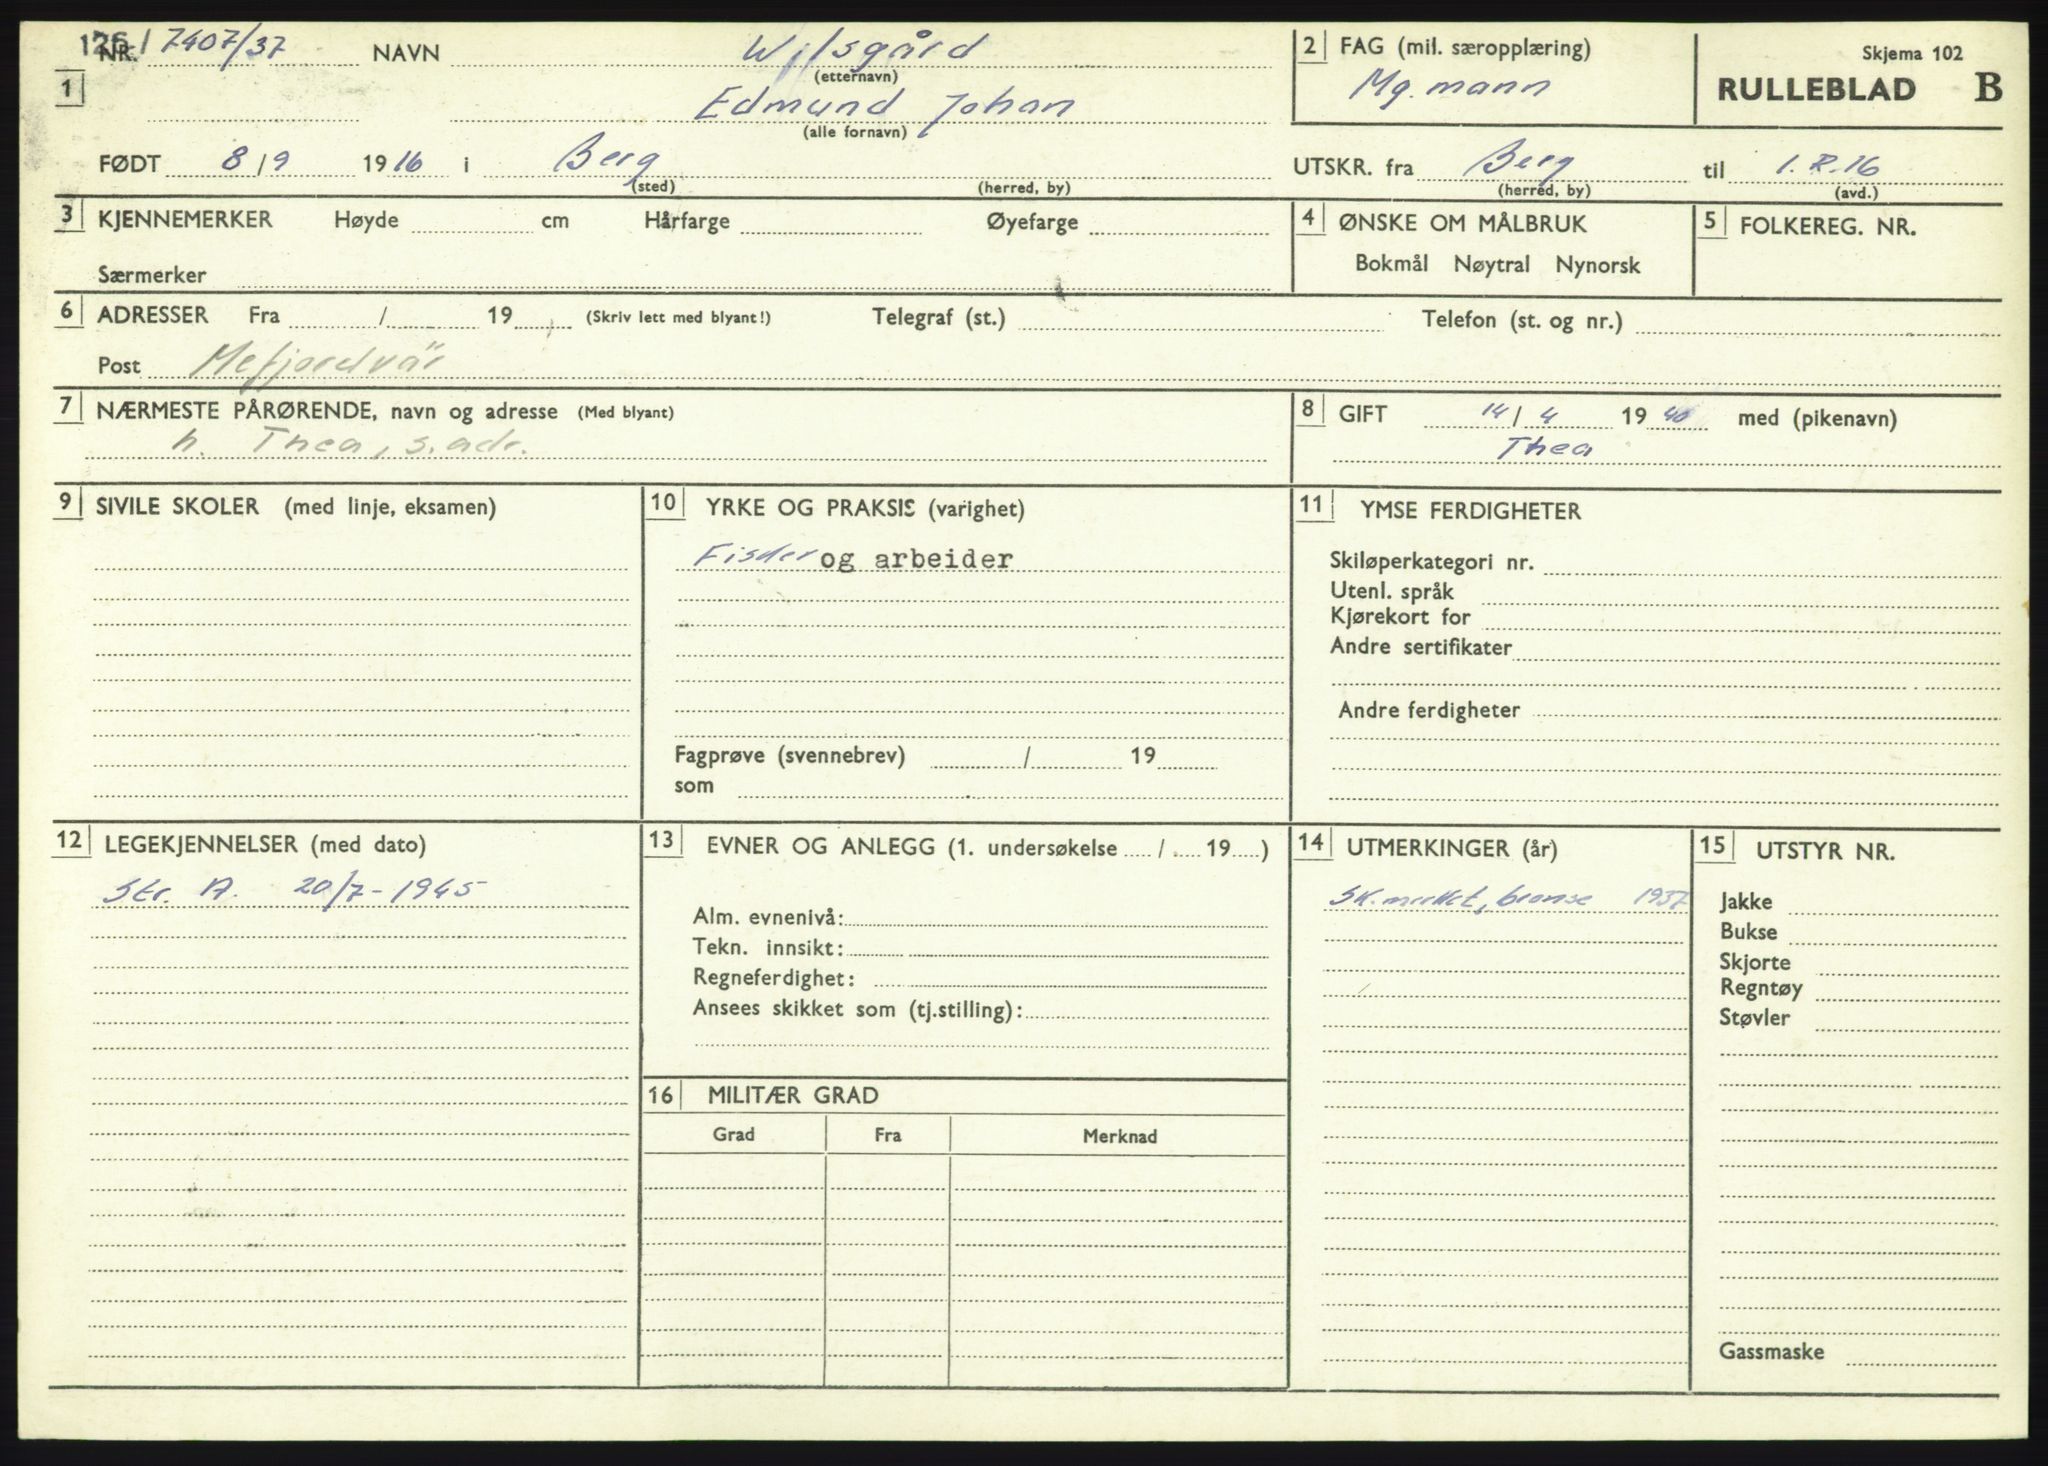 1261 7407/37 NR. NAVN Wilsgård
(etternavn)
1 Edmund Johan
(alle fornavn)
2 FAG (mil. særopplæring)
Mg. mann
Skjema 102
RULLEBLAD B
FØDT 8/9 1916 i Berg
(sted) (herred, by)
UTSKR. fra Berg til I.R.16
(herred, by) (avd.)
3 KJENNEMERKER Høyde cm Hårfarge Øyefarge
Særmerker
4 ØNSKE OM MÅLBRUK
Bokmål Nøytral Nynorsk
5 FOLKEREG. NR.
6 ADRESSER Fra / 19 (Skriv lett med blyant!) Telegraf (st.) Telefon (st. og nr.)
Post Mefjordvär
7 NÆRMESTE PÅRØRENDE, navn og adresse (Med blyant)
h. Thea, s. adr.
8 GIFT 14/4 1940 med (pikenavn)
Thea
9 SIVILE SKOLER (med linje, eksamen)
10 YRKE OG PRAKSIS (varighet)
Fisker og arbeider
Fagprøve (svennebrev) / 19
som
11 YMSE FERDIGHETER
Skiløperkategori nr.
Utenl. språk
Kjørekort for
Andre sertifikater
Andre ferdigheter
12 LEGEKJENNELSER (med dato)
Str. A. 20/7-1945
13 EVNER OG ANLEGG (1. undersøkelse / 19 )
Alm. evnenivå:
Tekn. innsikt:
Regneferdighet:
Ansees skikket som (tj.stilling):
14 UTMERKINGER (år)
Sk.merket, bronse 1937
15 UTSTYR NR.
Jakke
Bukse
Skjorte
Regntøy
Støvler
Gassmaske
16 MILITÆR GRAD
Grad Fra Merknad